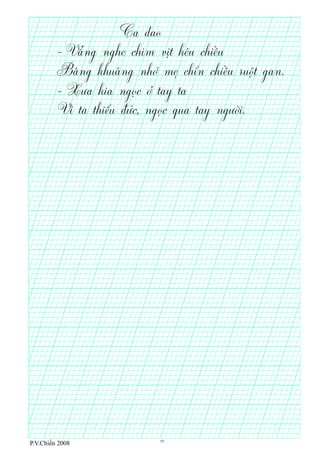 Ca dao
- Vẳng nghe chim vịt kêu chiều
Bâng khuâng nhớ mẹ chín chiều ruột gan.
- Xưa kia ngọc ở tay ta
Vì ta thiếu đức, ngọc qua tay người.
P.V.Chiến 2008